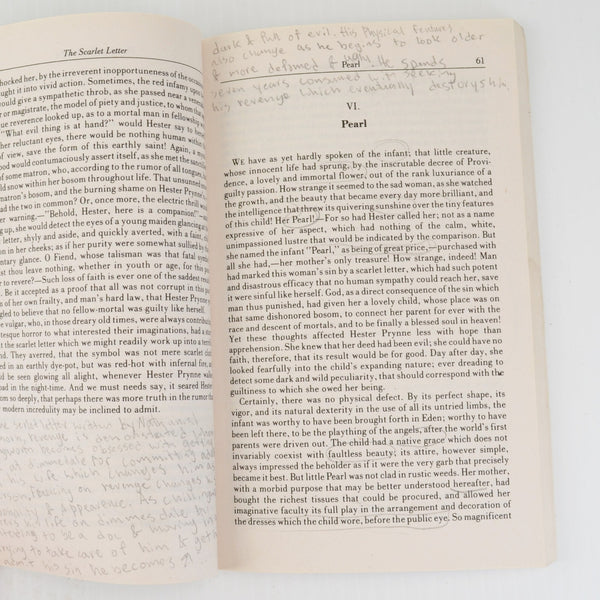 The Scarlet Letter
hocked her, by the irreverent inopportuneness of the
ught it into vivid action. Sometimes, the red infamy upon
ould give a sympathetic throb, as she passed near a venerable
r or magistrate, the model of piety and justice, to whom that
ue reverence looked up, as to a mortal man in fellowship
"What evil thing is at hand?" would Hester say to herself.
her reluctant eyes, there would be nothing human within
of view, save the form of this earthly saint! Again, a
ood would contumaciously assert itself, as she met the
of some matron, who, according to the rumor of all tongues,
ld snow within her bosom throughout life. That unsunned
matron's bosom, and the burning shame on Hester Prynne's
had the two in common? Or, once more, the electric thrill
warning,—"Behold, Hester, here is a companion!"
up, she would detect the eyes of a young maiden glancing at
letter, shyly and aside, and quickly averted, with a faint,
in her cheeks; as if her purity were somewhat sullied by
ntary glance. O Fiend, whose talisman was that fatal symbol
st thou leave nothing, whether in youth or age, for this
r to revere?—Such loss of faith is ever one of the saddest
. Be it accepted as a proof that all was not corrupt in this
of her own frailty, and man's hard law, that Hester Prynne
gled to believe that no fellow-mortal was guilty like herself.
e vulgar, who, in those dreary old times, were always
tesque horror to what interested their imaginations, had a
t the scarlet letter which we might readily work up into a
nd. They averred, that the symbol was not mere scarlet
d in an earthly dye-pot, but was red-hot with infernal fire,
d be seen glowing all alight, whenever Hester Prynne
oad in the night-time. And we must needs say, it seared
om so deeply, that perhaps there was more truth in the rumor
modern incredulity may be inclined to admit.
scarlet letter written by
for committing
life which
found revenge
& Appearence. As
life on
being to be a
to take care of him &
his sin he becomes
dark & full of evil. His Physical features
also change as he begins to look older
& more deformed & ugly. He spends
seven years consumed with seeking
his revenge which eventually destorys him.
Pearl 61
VI.
Pearl
WE have as yet hardly spoken of the infant; that little creature,
whose innocent life had sprung, by the inscrutable decree of Provi-
dence, a lovely and immortal flower, out of the rank luxuriance of a
guilty passion. How strange it seemed to the sad woman, as she watched
the growth, and the beauty that became every day more brilliant, and
the intelligence that threw its quivering sunshine over the tiny features
of this child! Her Pearl!—For so had Hester called her; not as a name
expressive of her aspect, which had nothing of the calm, white,
unimpassioned lustre that would be indicated by the comparison. But
she named the infant "Pearl," as being of great price,—purchased with
all she had,—her mother's only treasure! How strange, indeed! Man
had marked this woman's sin by a scarlet letter, which had such potent
and disastrous efficacy that no human sympathy could reach her, save
it were sinful like herself. God, as a direct consequence of the sin which
man thus punished, had given her a lovely child, whose place was on
that same dishonored bosom, to connect her parent for ever with the
race and descent of mortals, and to be finally a blessed soul in heaven!
Yet these thoughts affected Hester Prynne less with hope than
apprehension. She knew that her deed had been evil; she could have no
faith, therefore, that its result would be for good. Day after day, she
looked fearfully into the child's expanding nature; ever dreading to
detect some dark and wild peculiarity, that should correspond with the
guiltiness to which she owed her being.
Certainly, there was no physical defect. By its perfect shape, its
vigor, and its natural dexterity in the use of all its untried limbs, the
infant was worthy to have been brought forth in Eden; worthy to have
been left there, to be the plaything of the angels, after the world's first
parents were driven out. The child had a native grace which does not
invariably coexist with faultless beauty; its attire, however simple,
always impressed the beholder as if it were the very garb that precisely
became it best. But little Pearl was not clad in rustic weeds. Her mother,
with a morbid purpose that may be better understood hereafter, had
bought the richest tissues that could be procured, and allowed her
imaginative faculty its full play in the arrangement and decoration of
the dresses which the child wore, before the public eye. So magnificent